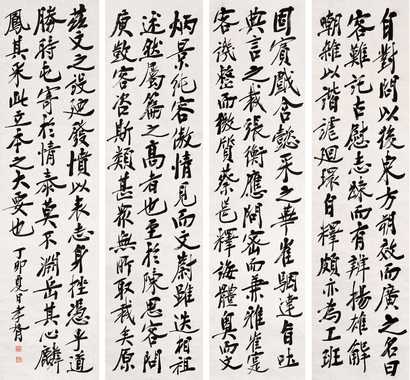 自對問以後東方朔效而廣之名曰
客難託古慰志疎而有辨楊雄解
嘲雜以諧謔迴環自釋頗亦為工班
固賓戲含懿采之華崔駰達旨吐
典言之裁張衡應問密而兼雅崔寔
客譏整而微質蔡邕釋誨體奧而文
炳景純客傲情見而文蔚雖迭相祖
述然屬篇之高者也至於陳思客問
庾敳客咨斯類甚眾無所取裁矣原
茲文之設迺發憤以表志身挫憑乎道
勝時屯寄於情泰莫不淵岳其心麟
鳳其采此立本之大要也 丁卯夏日李